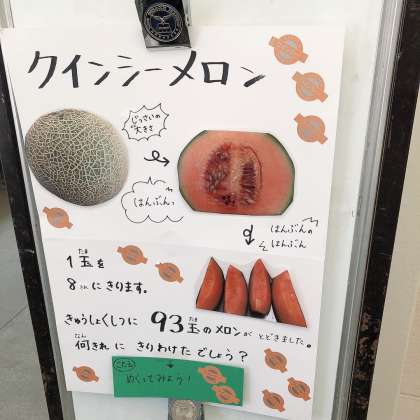 クインシーメロン
じっさいの
大きさ
はんぶんっ
はんぶんの
はんぶん
1玉を
たま
8つに きります。
きゅうしょくしつに 93玉のメロンが とどきました。
たま
何きれに きりわけたでしょう?
なん
こたえ
めくってみよう!